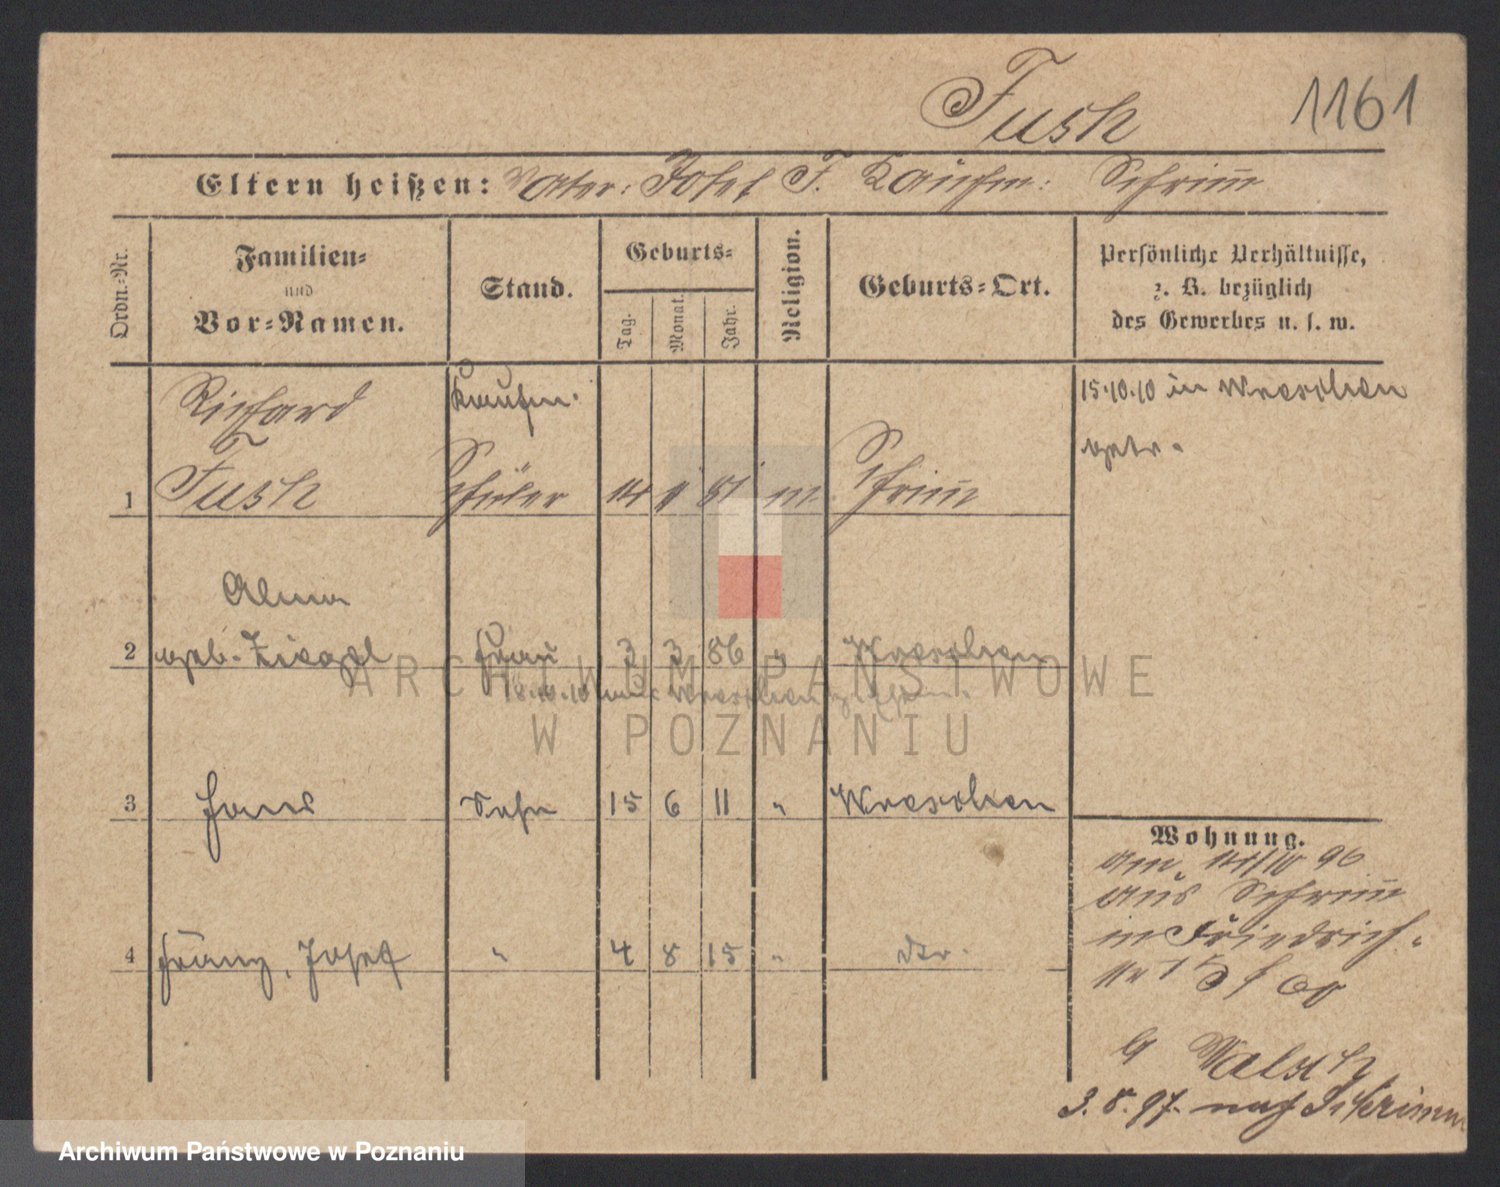 Tush 1161
Eltern heißen: Vater: Josef T. Kaufm: Schrimm
Ordn.-Nr.
Familien-
und
Vor-Namen.
Stand.
Geburts-
Tag.
Monat.
Jahr.
Religion.
Geburts-Ort.
Persönliche Verhältnisse,
z. B. bezüglich
des Gewerbes u. s. w.
Richard Kaufm. 15.10.10 in Wreschen
getr.
1 Tush Schüler 14 81 m Schrimm
Alma
2 geb. Ziegel Frau 3 3 86 " Wreschen
18.10.10 von Wreschen
3 Hans Sohn 15 6 11 " Wreschen
4 Franz, Josef " 4 8 15 " dto.
Wohnung.
am 14/10 96
aus Schrimm
in Friedrich-
3.8.97. nach Schrimm
ARCHIWUM PAŃSTWOWE
W POZNANIU
Archiwum Państwowe w Poznaniu